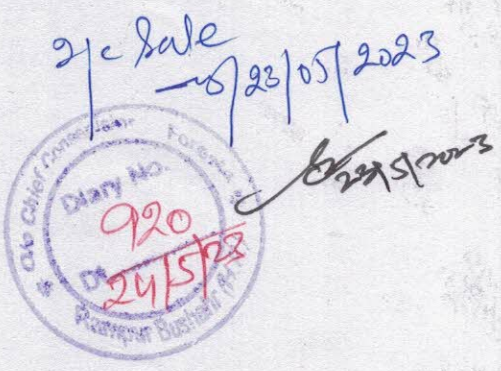 I/c Sale
23/05/2023
23/5/2023
O/o Chief Conservator Forests
Diary No.
920
Dt.
24/5/23
Rampur Bushahr (H.P.)